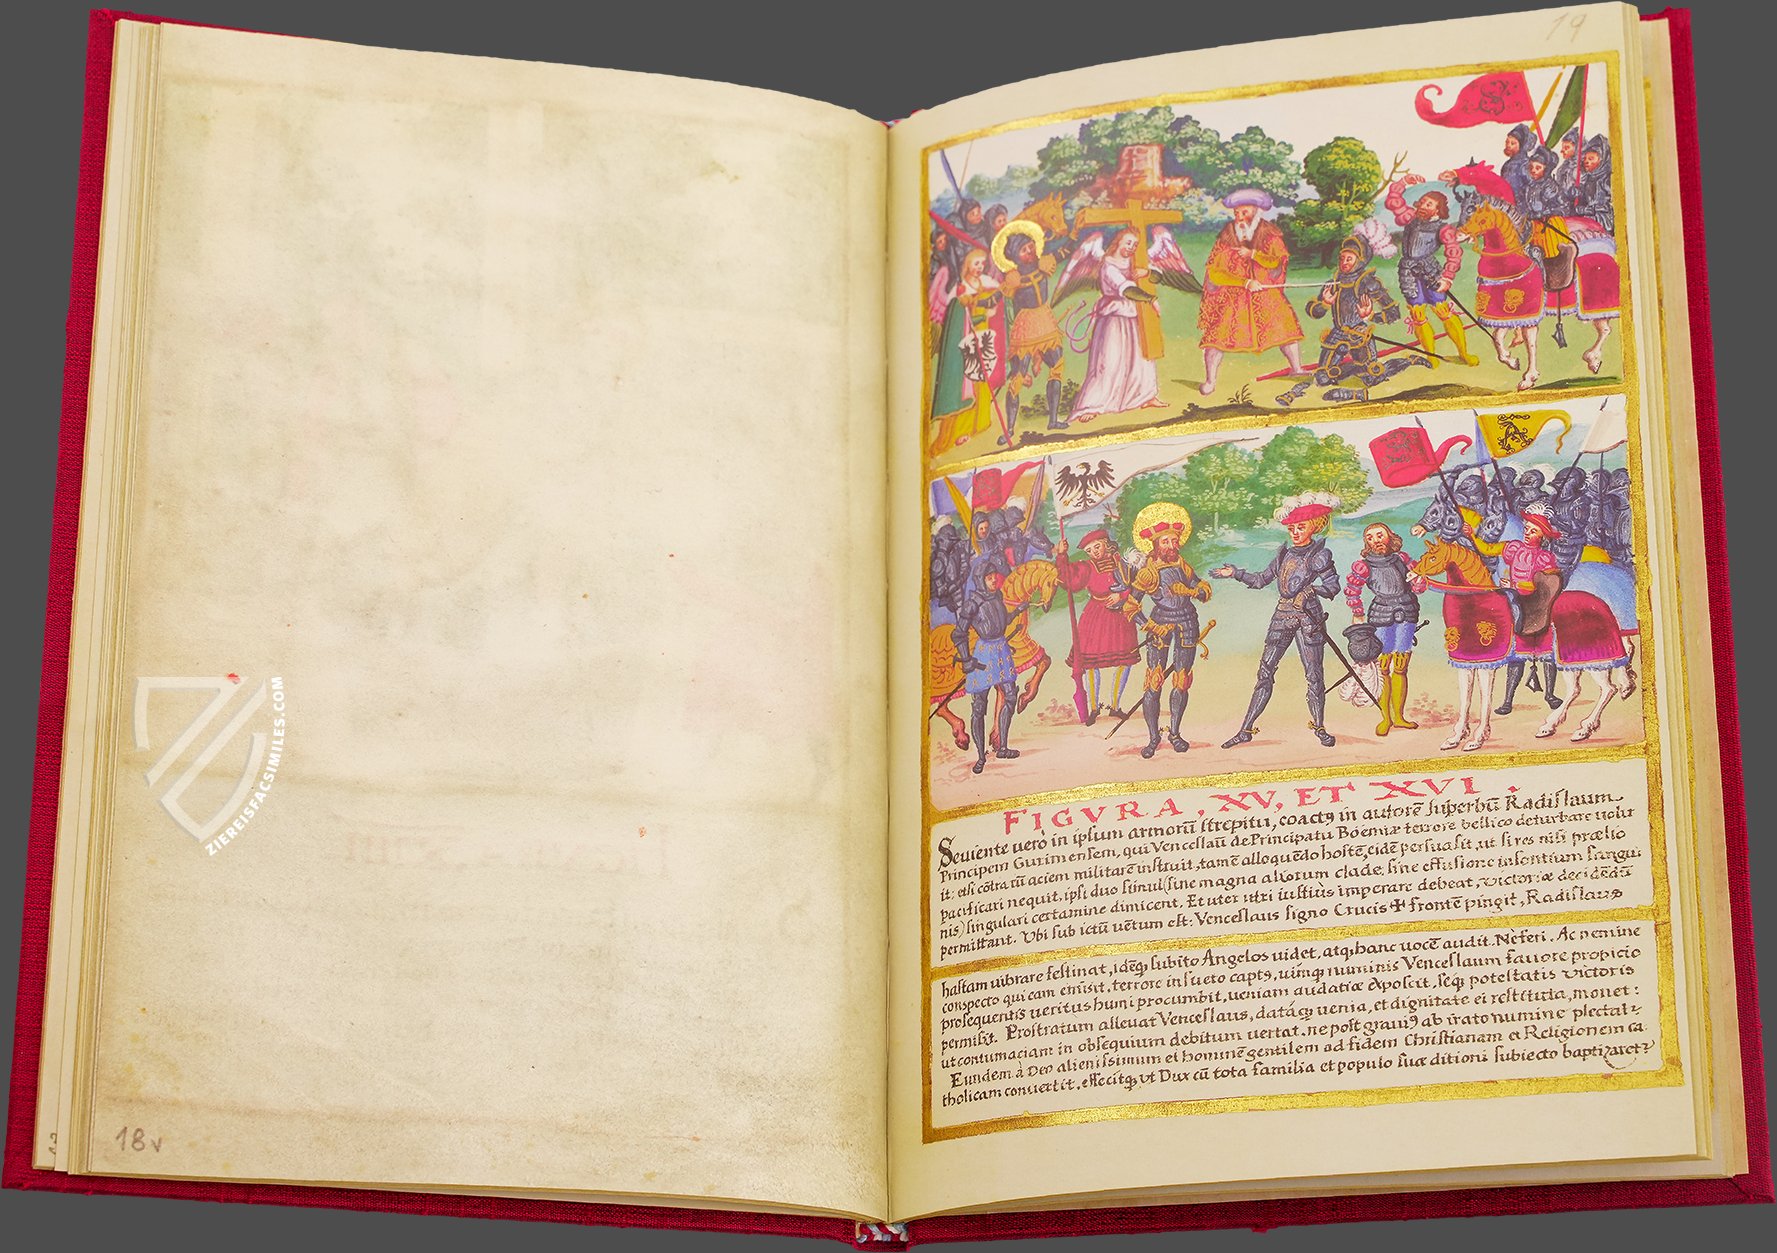 19
FIGVRA, XV, ET XVI.
Seuiente uerò in ipsum armorũ strepitu, coactꝰ in autorẽ superbũ Radislaum
Principem Gurimensem, qui Venceslaũ de Principatu Boemiæ terrore bellico deturbare uolu
it: etsi cõtra rũ aciem militarẽ instruit, tamẽ alloquẽdo hostẽ, eidẽ persuasit, ut si res nisi prælio
pacificari nequit, ipsi duo simul (sine magna aliorum clade, sine effusione insontium sangui
nis) singulari certamine dimicent. Et uter utri iustiùs imperare debeat, victoriæ decidẽdũ
permittant. Vbi sub ictũ uẽtum est. Venceslaus signo Crucis ✝ frontẽ pingit, Radislaus
hastam uibrare festinat, idẽqꝫ subito Angelos uidet, atqꝫ hanc uocẽ audit. Ne feri. Ac nemine
conspecto qui eam emisit, terrore insueto captꝰ, uimqꝫ numinis Venceslaum fauore propicio
prosequentis ueritus humi procumbit, ueniam audatiæ exposcit, seqꝫ potestatis victoris
permisit. Prostratum alleuat Venceslaus, datáqꝫ uenia, et dignitate ei restituta, monet:
ut contumaciam in obsequium debitum uertat, ne post grauiꝰ ab irato numine plectat᷑
Eundem à Deo alienissimum et hominẽ gentilem ad fidem Christianam et Religionem ca
tholicam conuertit, effecitqꝫ vt Dux cũ tota familia et populo suæ ditioni subiecto baptizaret᷑
18v
ZIEREISFACSIMILES.COM